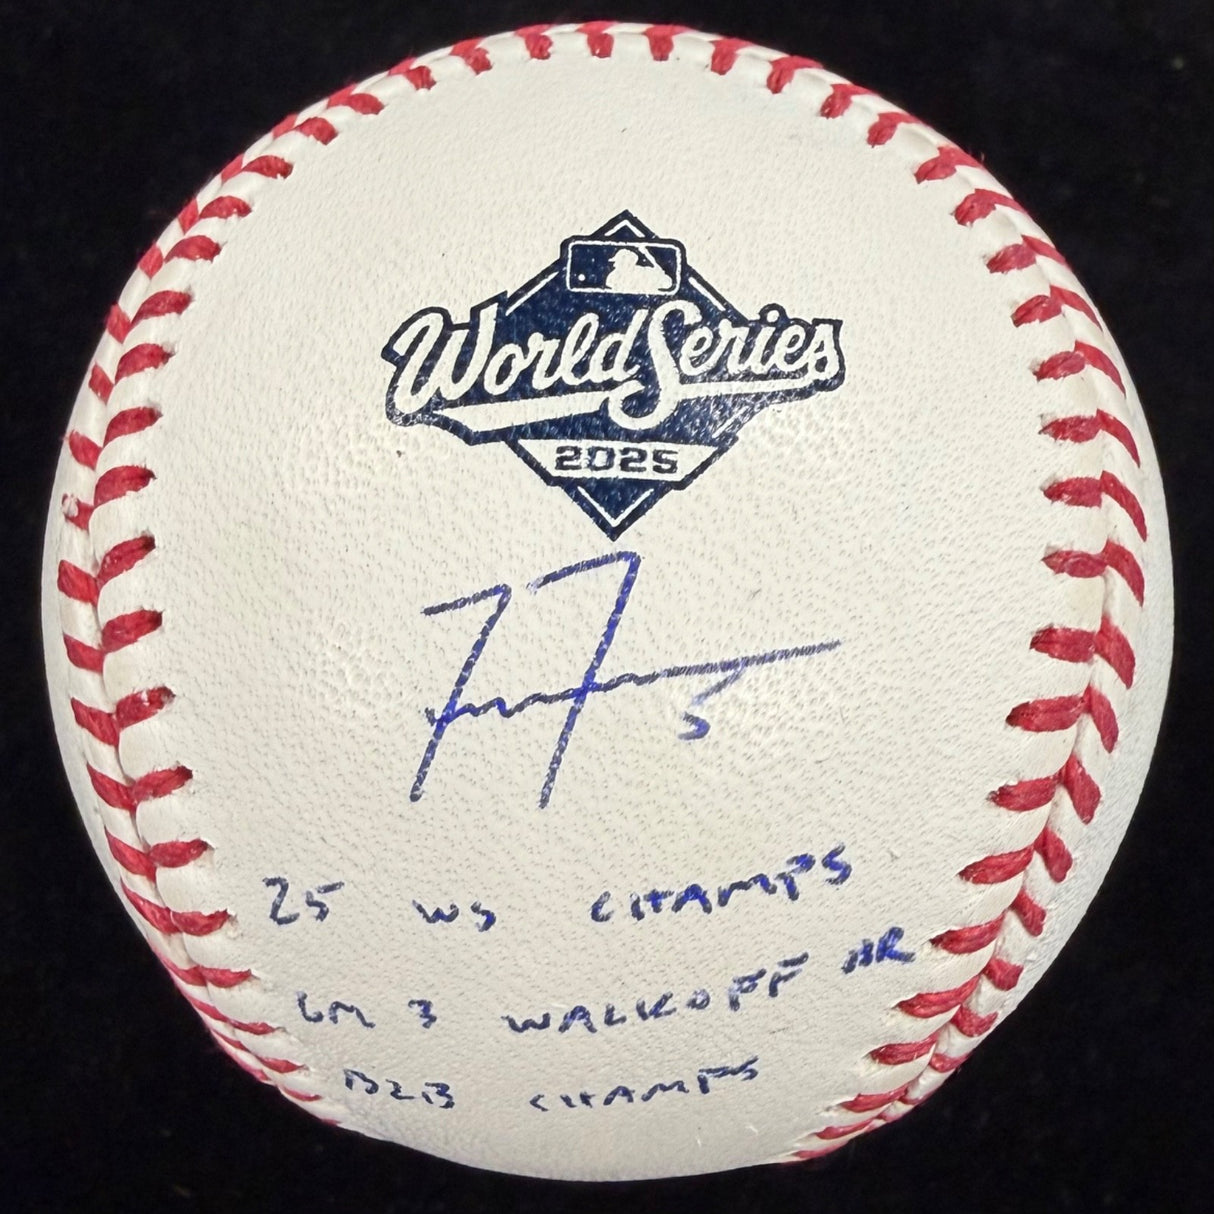 World Series
2025
5
25 WS CHAMPS
GM 3 WALKOFF HR
B2B CHAMPS